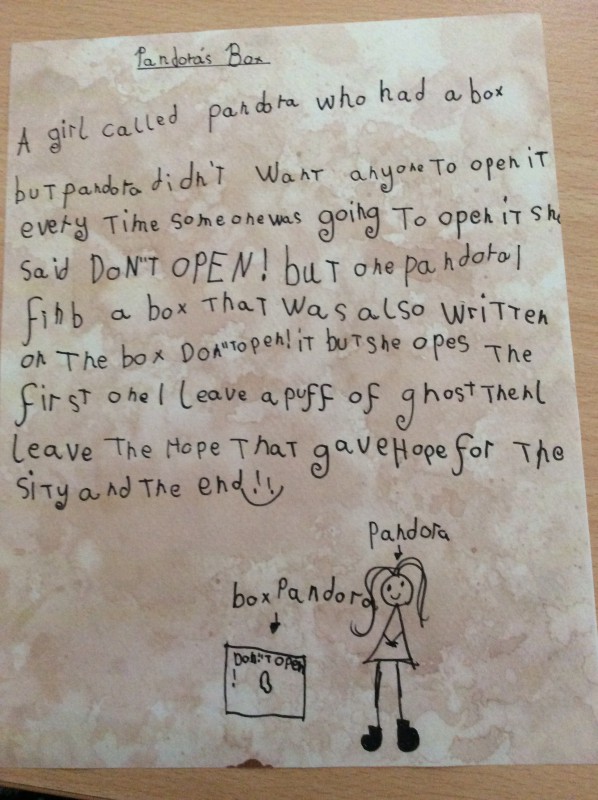 Pandora's Box
A girl called pandora who had a box
but pandora didn't want anyone to open it
every time someone was going to open it she
said DON"T OPEN! but one pandora I
finb a box that was also written
on the box Don"t open! it but she opes the
first one I leave a puff of ghost then I
leave the Hope that gave Hope for the
sity and the end!!
Pandora
box Pandora
Don"t open
!